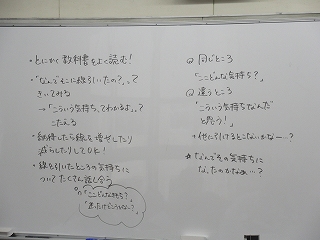 ・とにかく教科書をよく読む!
・「なんでそこに線引いたの?」って
きいてみる
→「こういう気持ち、てわかるよ」って
こたえる
・納得したら線を増やしたり
減らしたりしてOK!
・線を引いたところの気持ちに
ついてたくさん話し合う
「ここどんな気持ち?」
同じところ
「ここどんな気持ち?」
違うところ
"こういう気持ちなんだ
と思う!"
・他に引けるとこないかな…?
☆なんでその気持ちに
なったのかなぁ…?